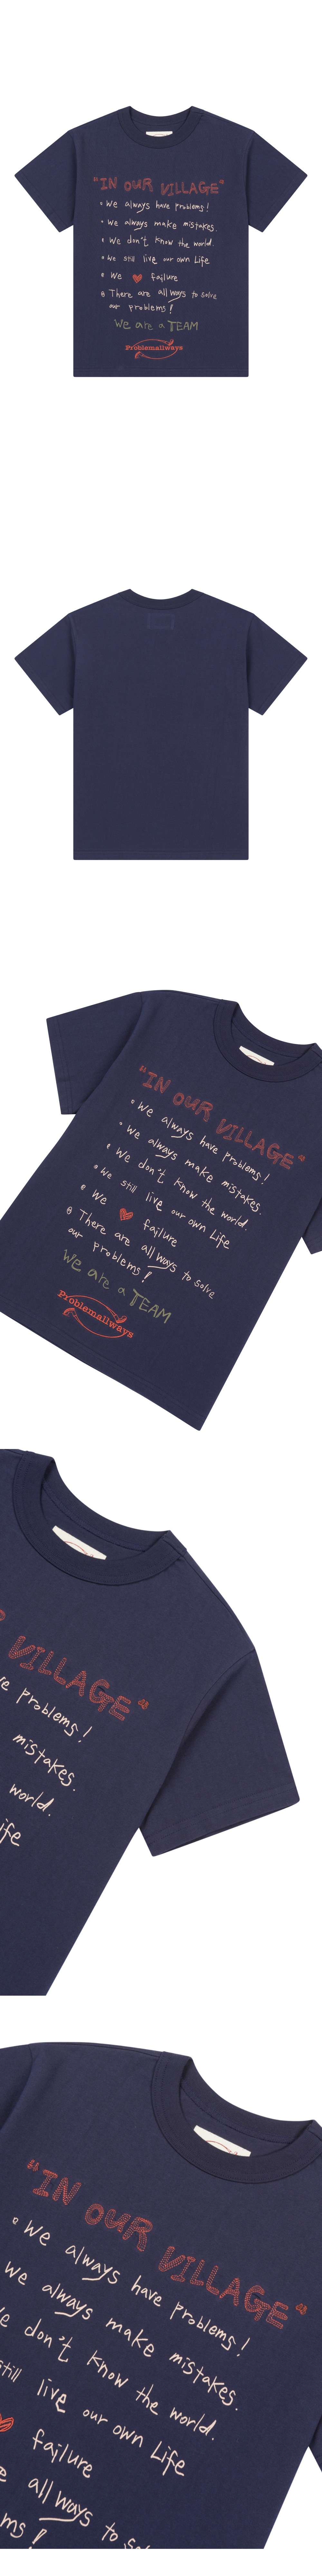 "IN OUR VILLAGE"
• We always have problems!
• We always make mistakes.
• We don't know the world.
• We still live our own Life
• We ♥ failure
• There are all ways to solve
our problems!
We are a TEAM
Problemallways
"IN OUR VILLAGE"
• We always have problems!
• We always make mistakes.
• We don't know the world.
• We still live our own Life
• We ♥ failure
• There are all ways to solve
our problems!
We are a TEAM
Problemallways
VILLAGE"
ve problems!
mistakes.
world.
ife
"IN OUR VILLAGE"
• We always have problems!
We always make mistakes.
e don't know the world.
still live our own Life
♥ failure
e all ways to so
ms!